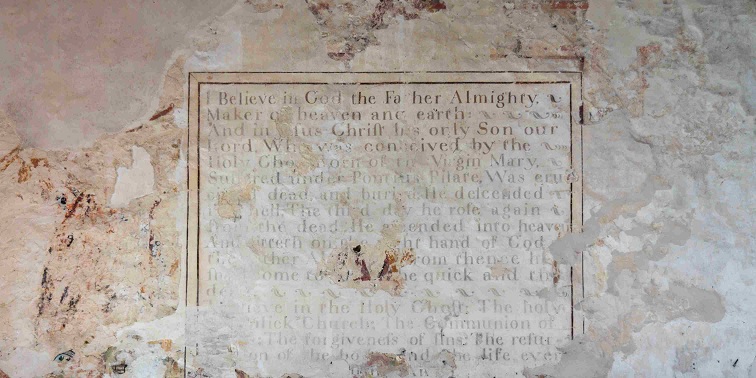 I Believe in God the Father Almighty,
Maker of heaven and earth:
And in Jesus Chriſt his only Son our
Lord, Who was conceived by the
Holy Ghoſt, Born of the Virgin Mary,
Suffered under Pontius Pilate, Was cru
dead, and buried. He deſcended
hell; The third day he roſe again
from the dead. He aſcended into heaven
And ſitteth on the right hand of God
the Father from thence he
come to the quick and the
d
in the Holy Ghoſt; The holy
Church; The Communion of
The forgiveneſs of ſins; The reſur
of the body and the life ever